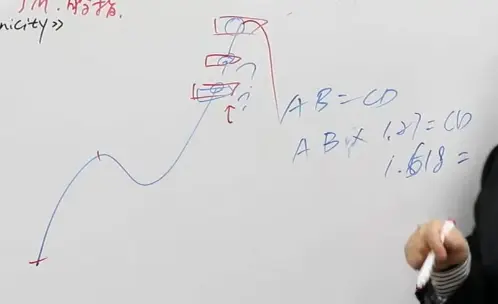 nicity》
?
?
AB=CD
AB×1.27=CD
1.618=